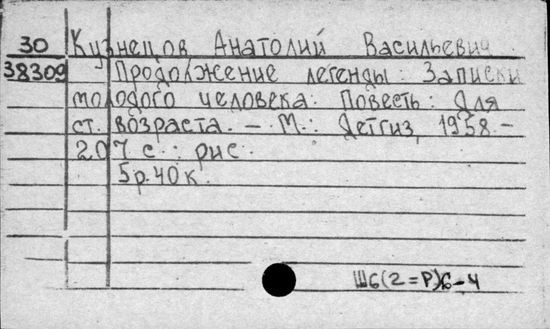 30 Кузнецов Анатолий Васильевич
38309 Продолжение легенды: Записки
молодого человека: Повесть: Для
ст. возраста. – М.: Детгиз, 1958.–
207 с.: рис.
5р.40к.
Ш6(2=Р)6-4